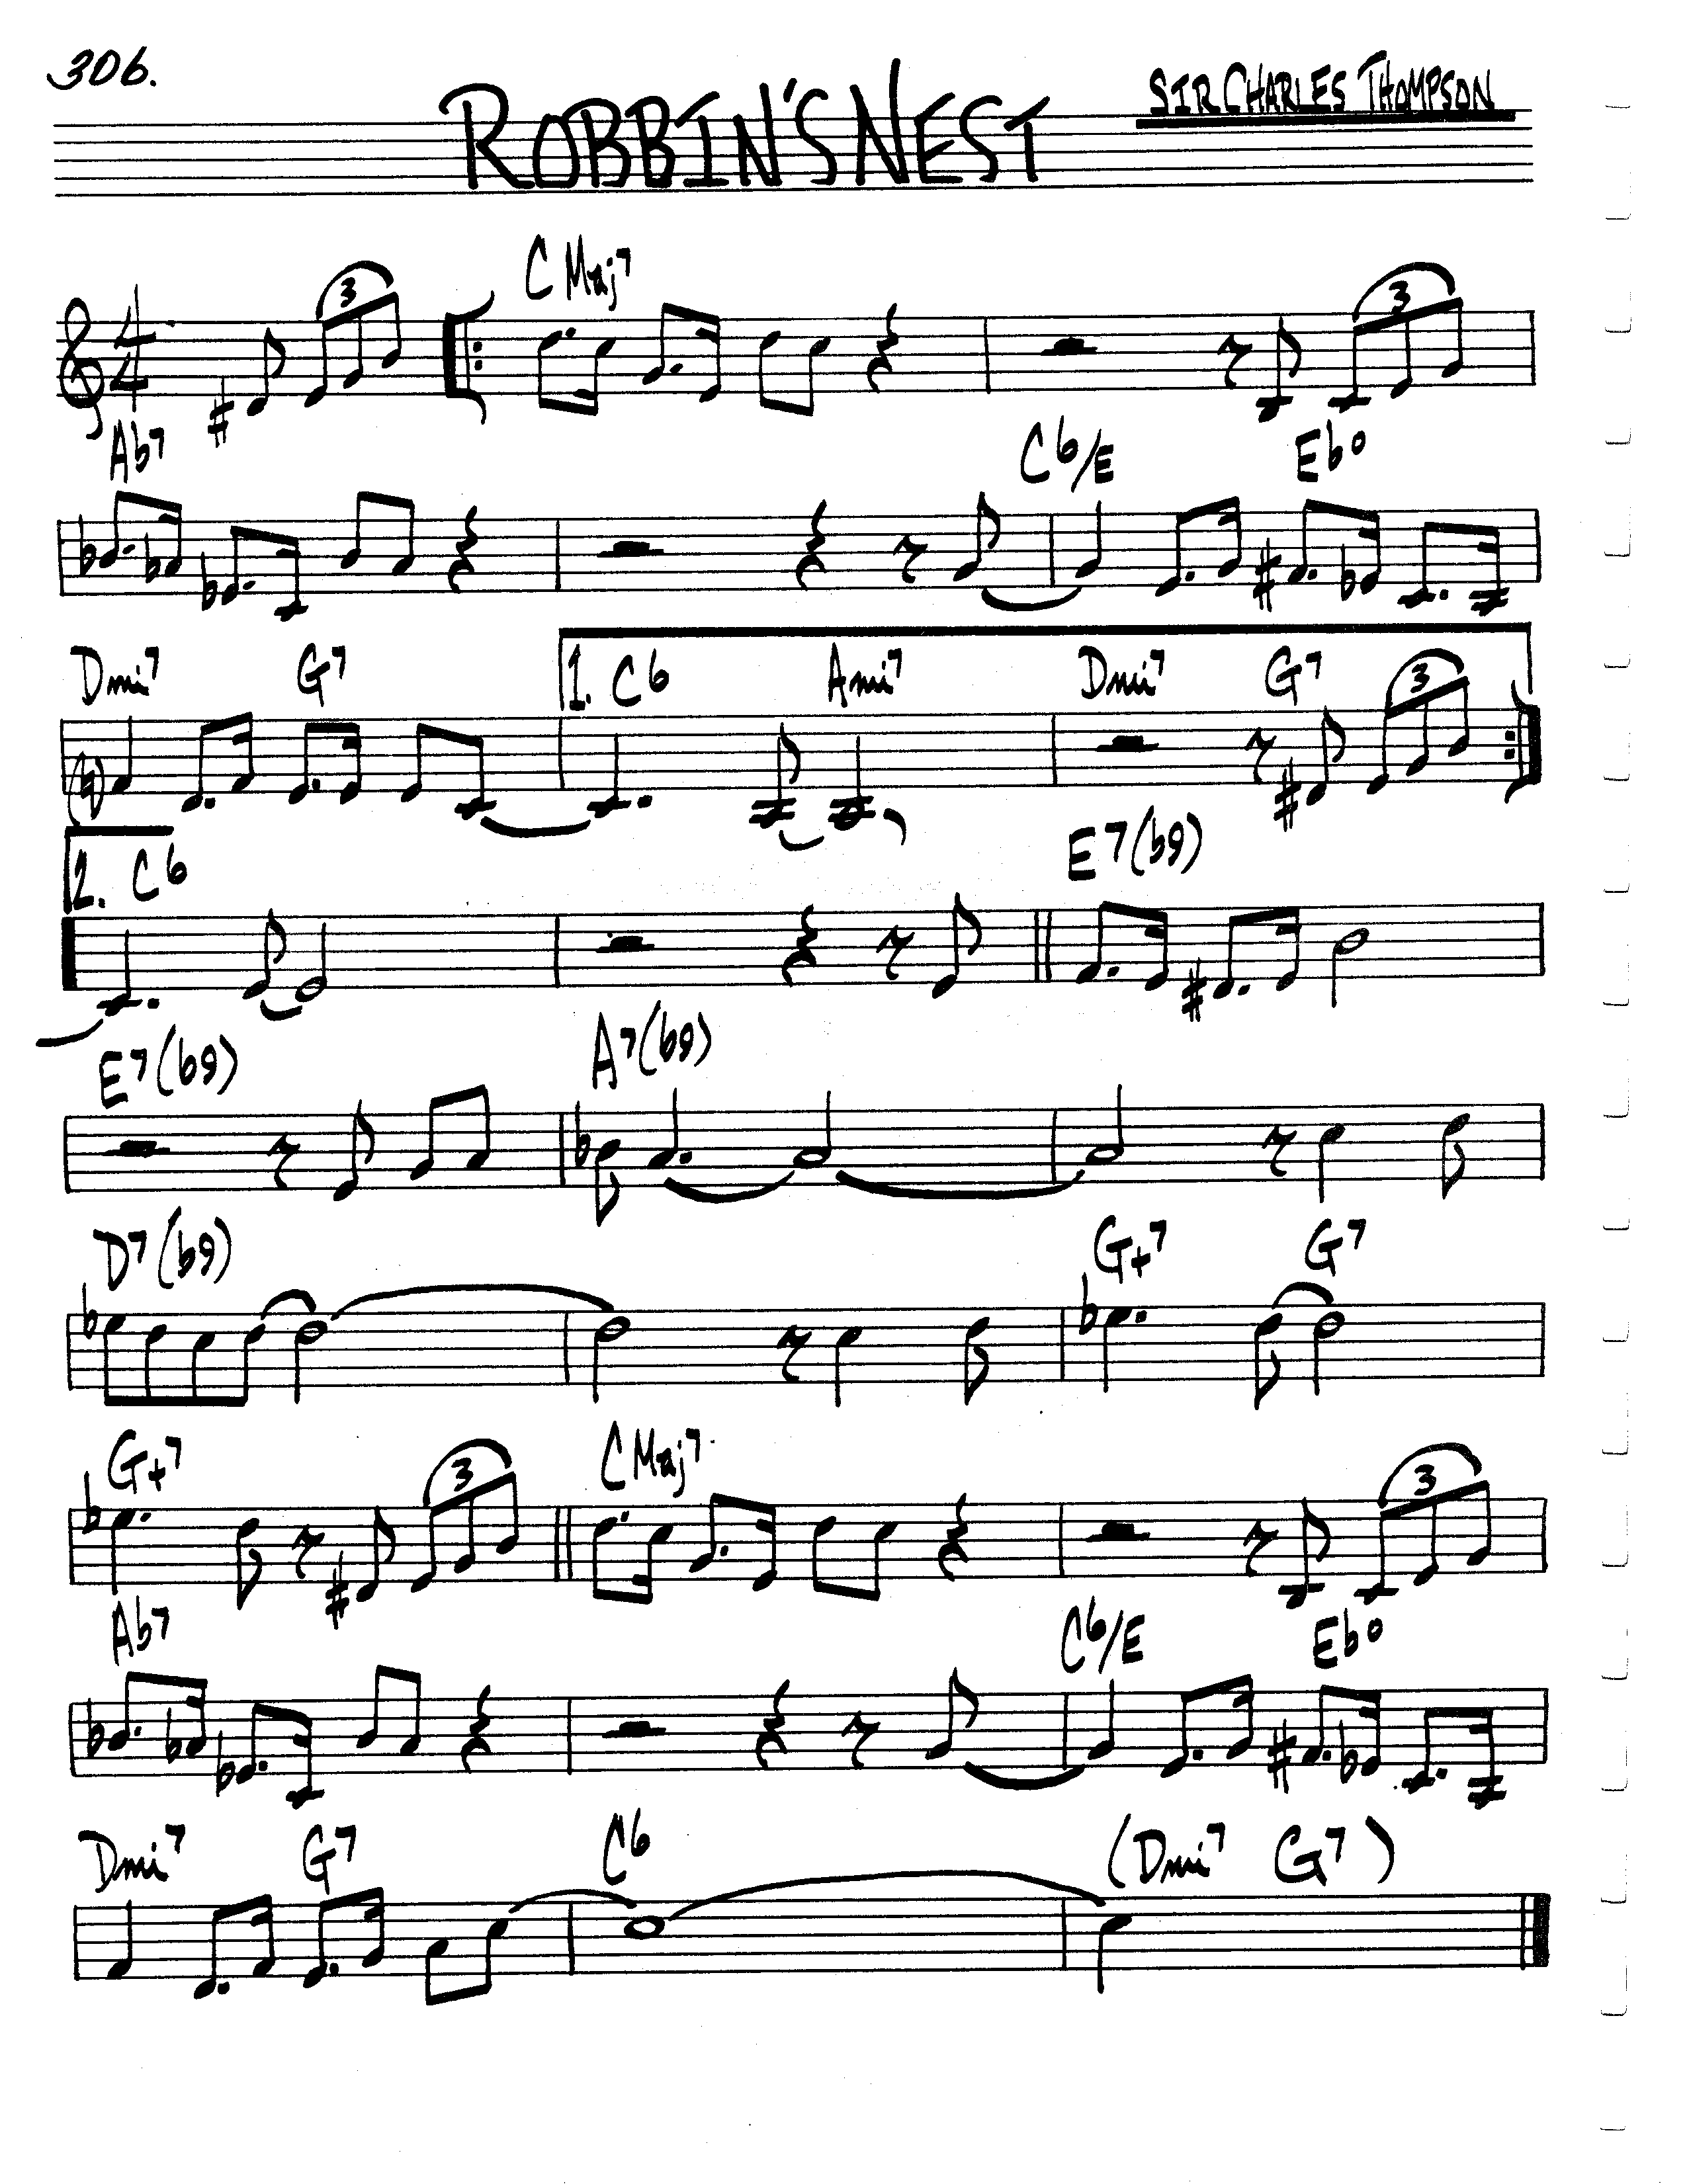 306.
ROBBIN'S NEST
SIR CHARLES THOMPSON
C Maj7
4 4 3 3
Ab7 C6/E Ebo
Dmi7 G7 1. C6 Ami7 Dmi7 G7
3
2. C6 E7(b9)
E7(b9) A7(b9)
D7(b9) G+7 G7
G+7 C Maj7
3 3
Ab7 C6/E Ebo
Dmi7 G7 C6 (Dmi7 G7)